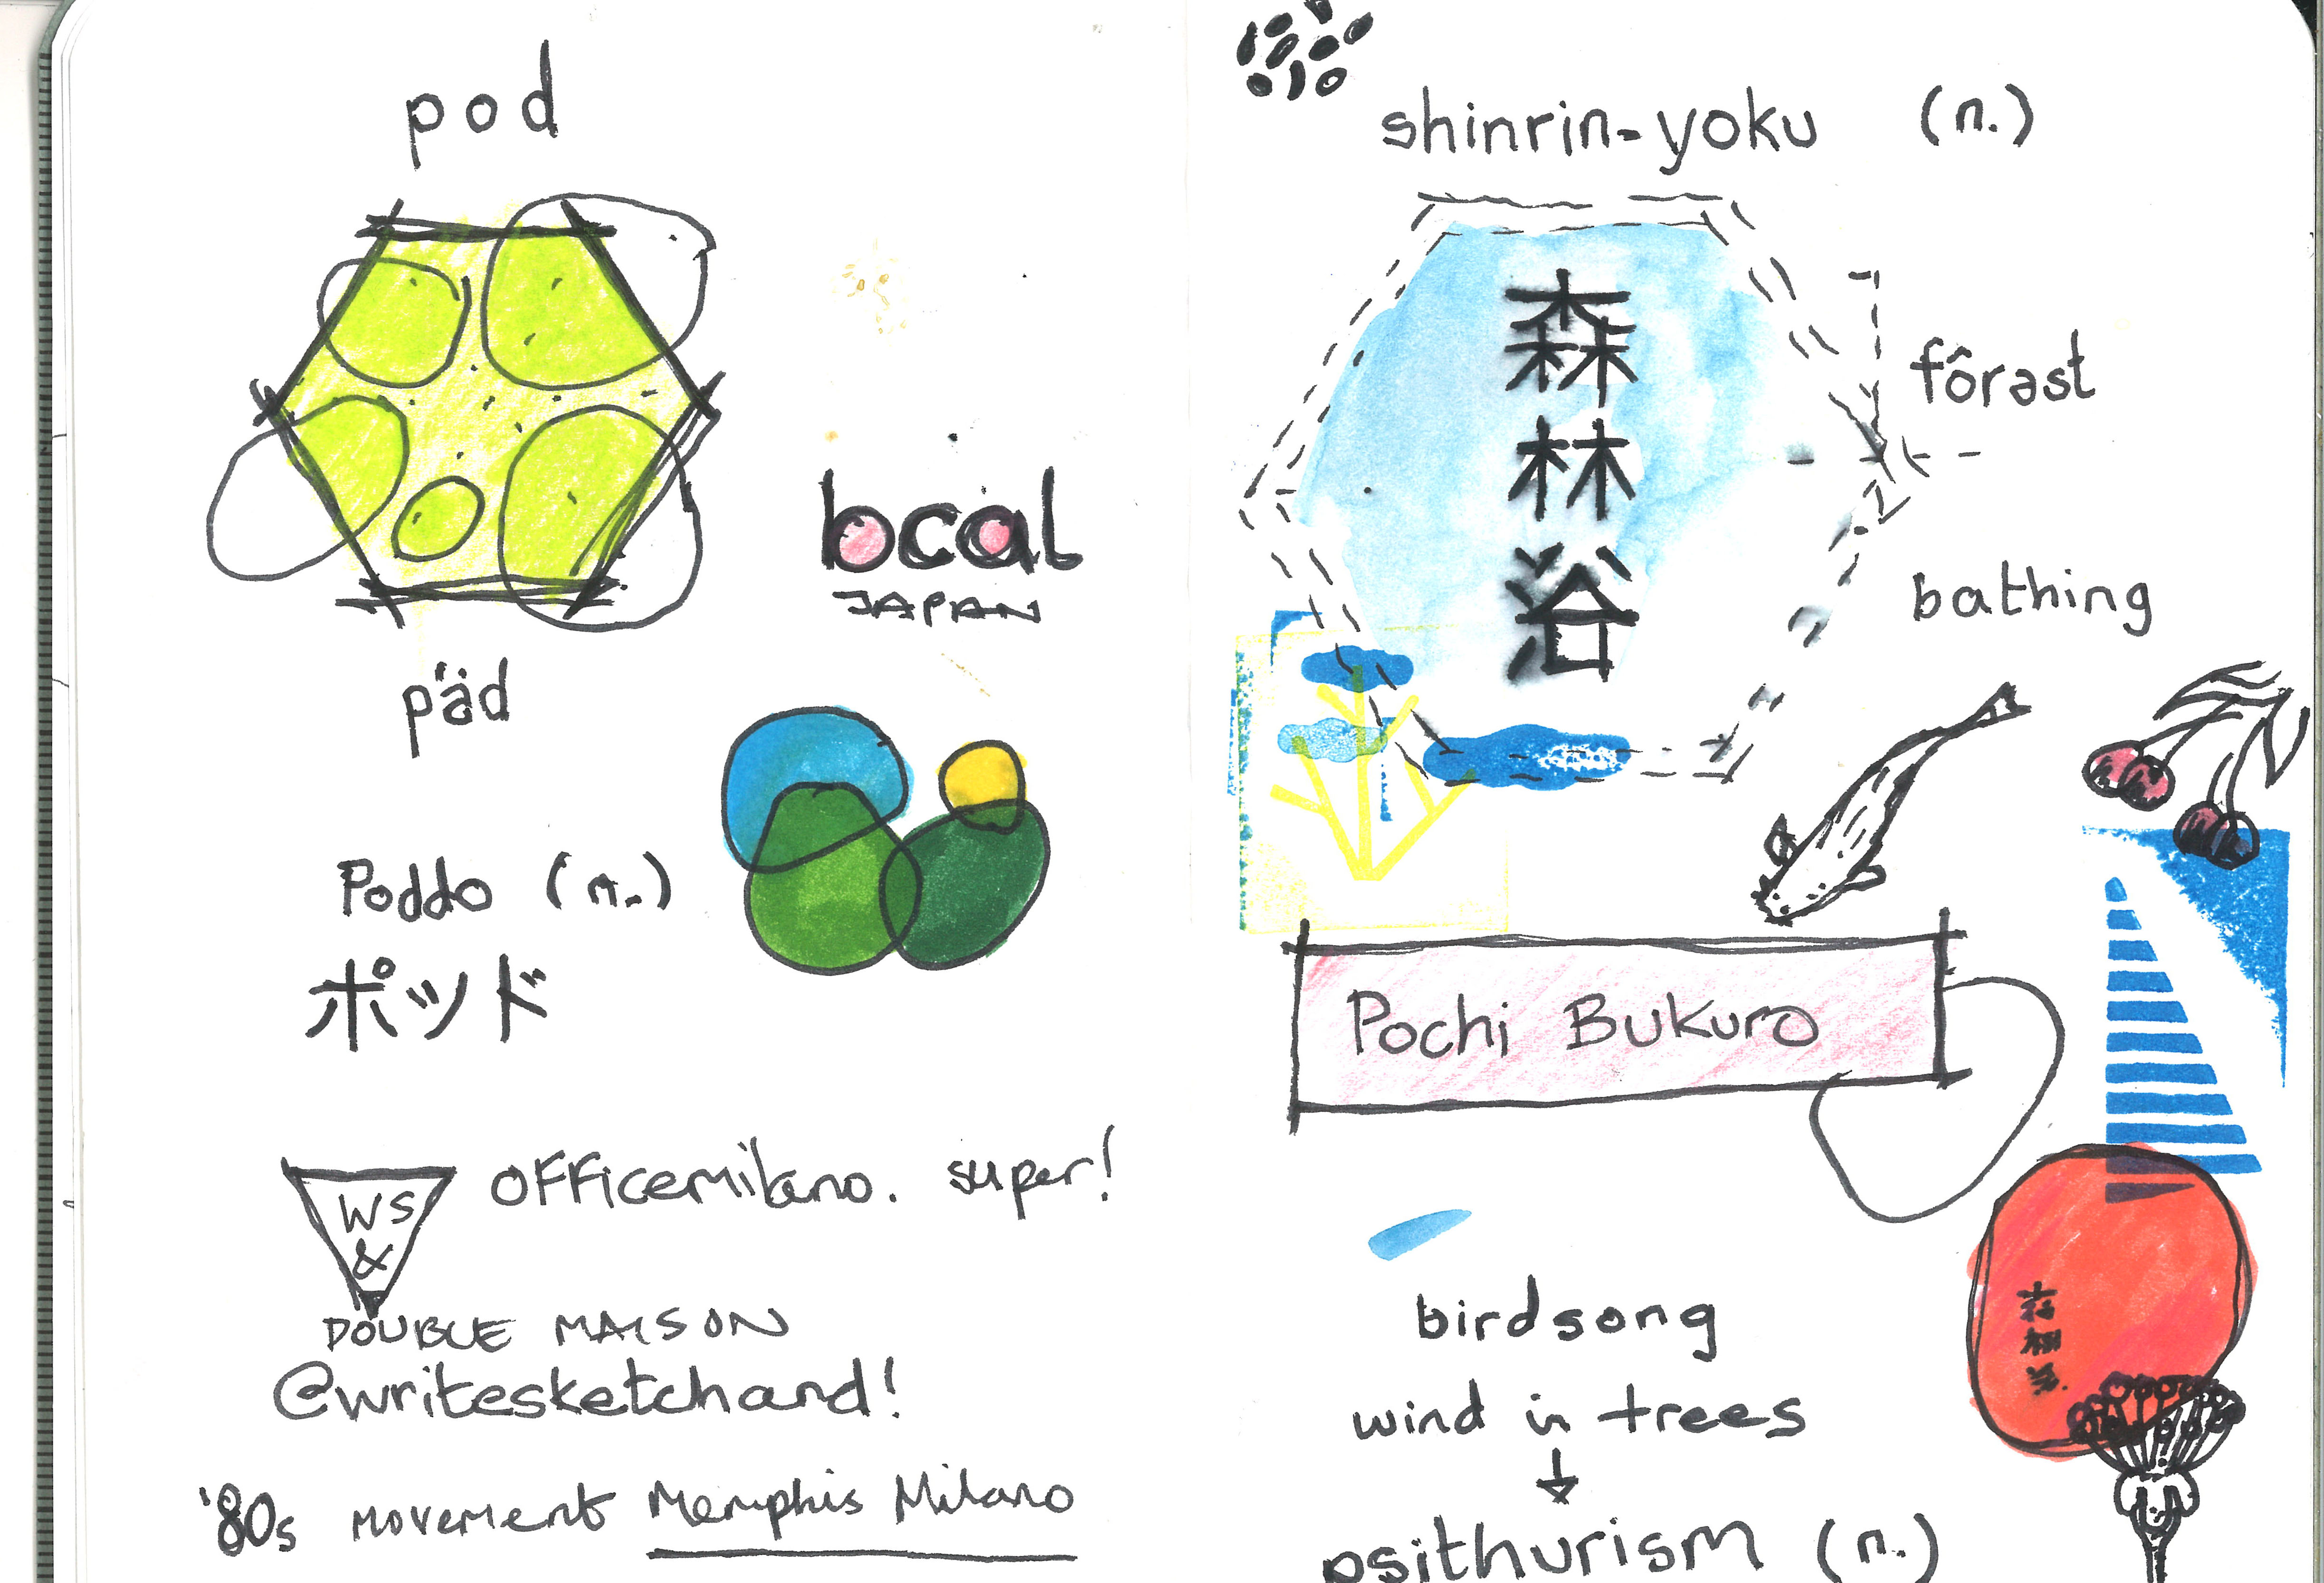 pod
p'äd
Poddo (n.)
ポッド
local
JAPAN
WS
&
officemilano. super!
DOUBLE MAISON
@writesketchand!
'80s movement Memphis Milano
shinrin-yoku (n.)
森
林
浴
fôrəst
bathing
Pochi Bukuro
birdsong
wind in trees
psithurism (n.)